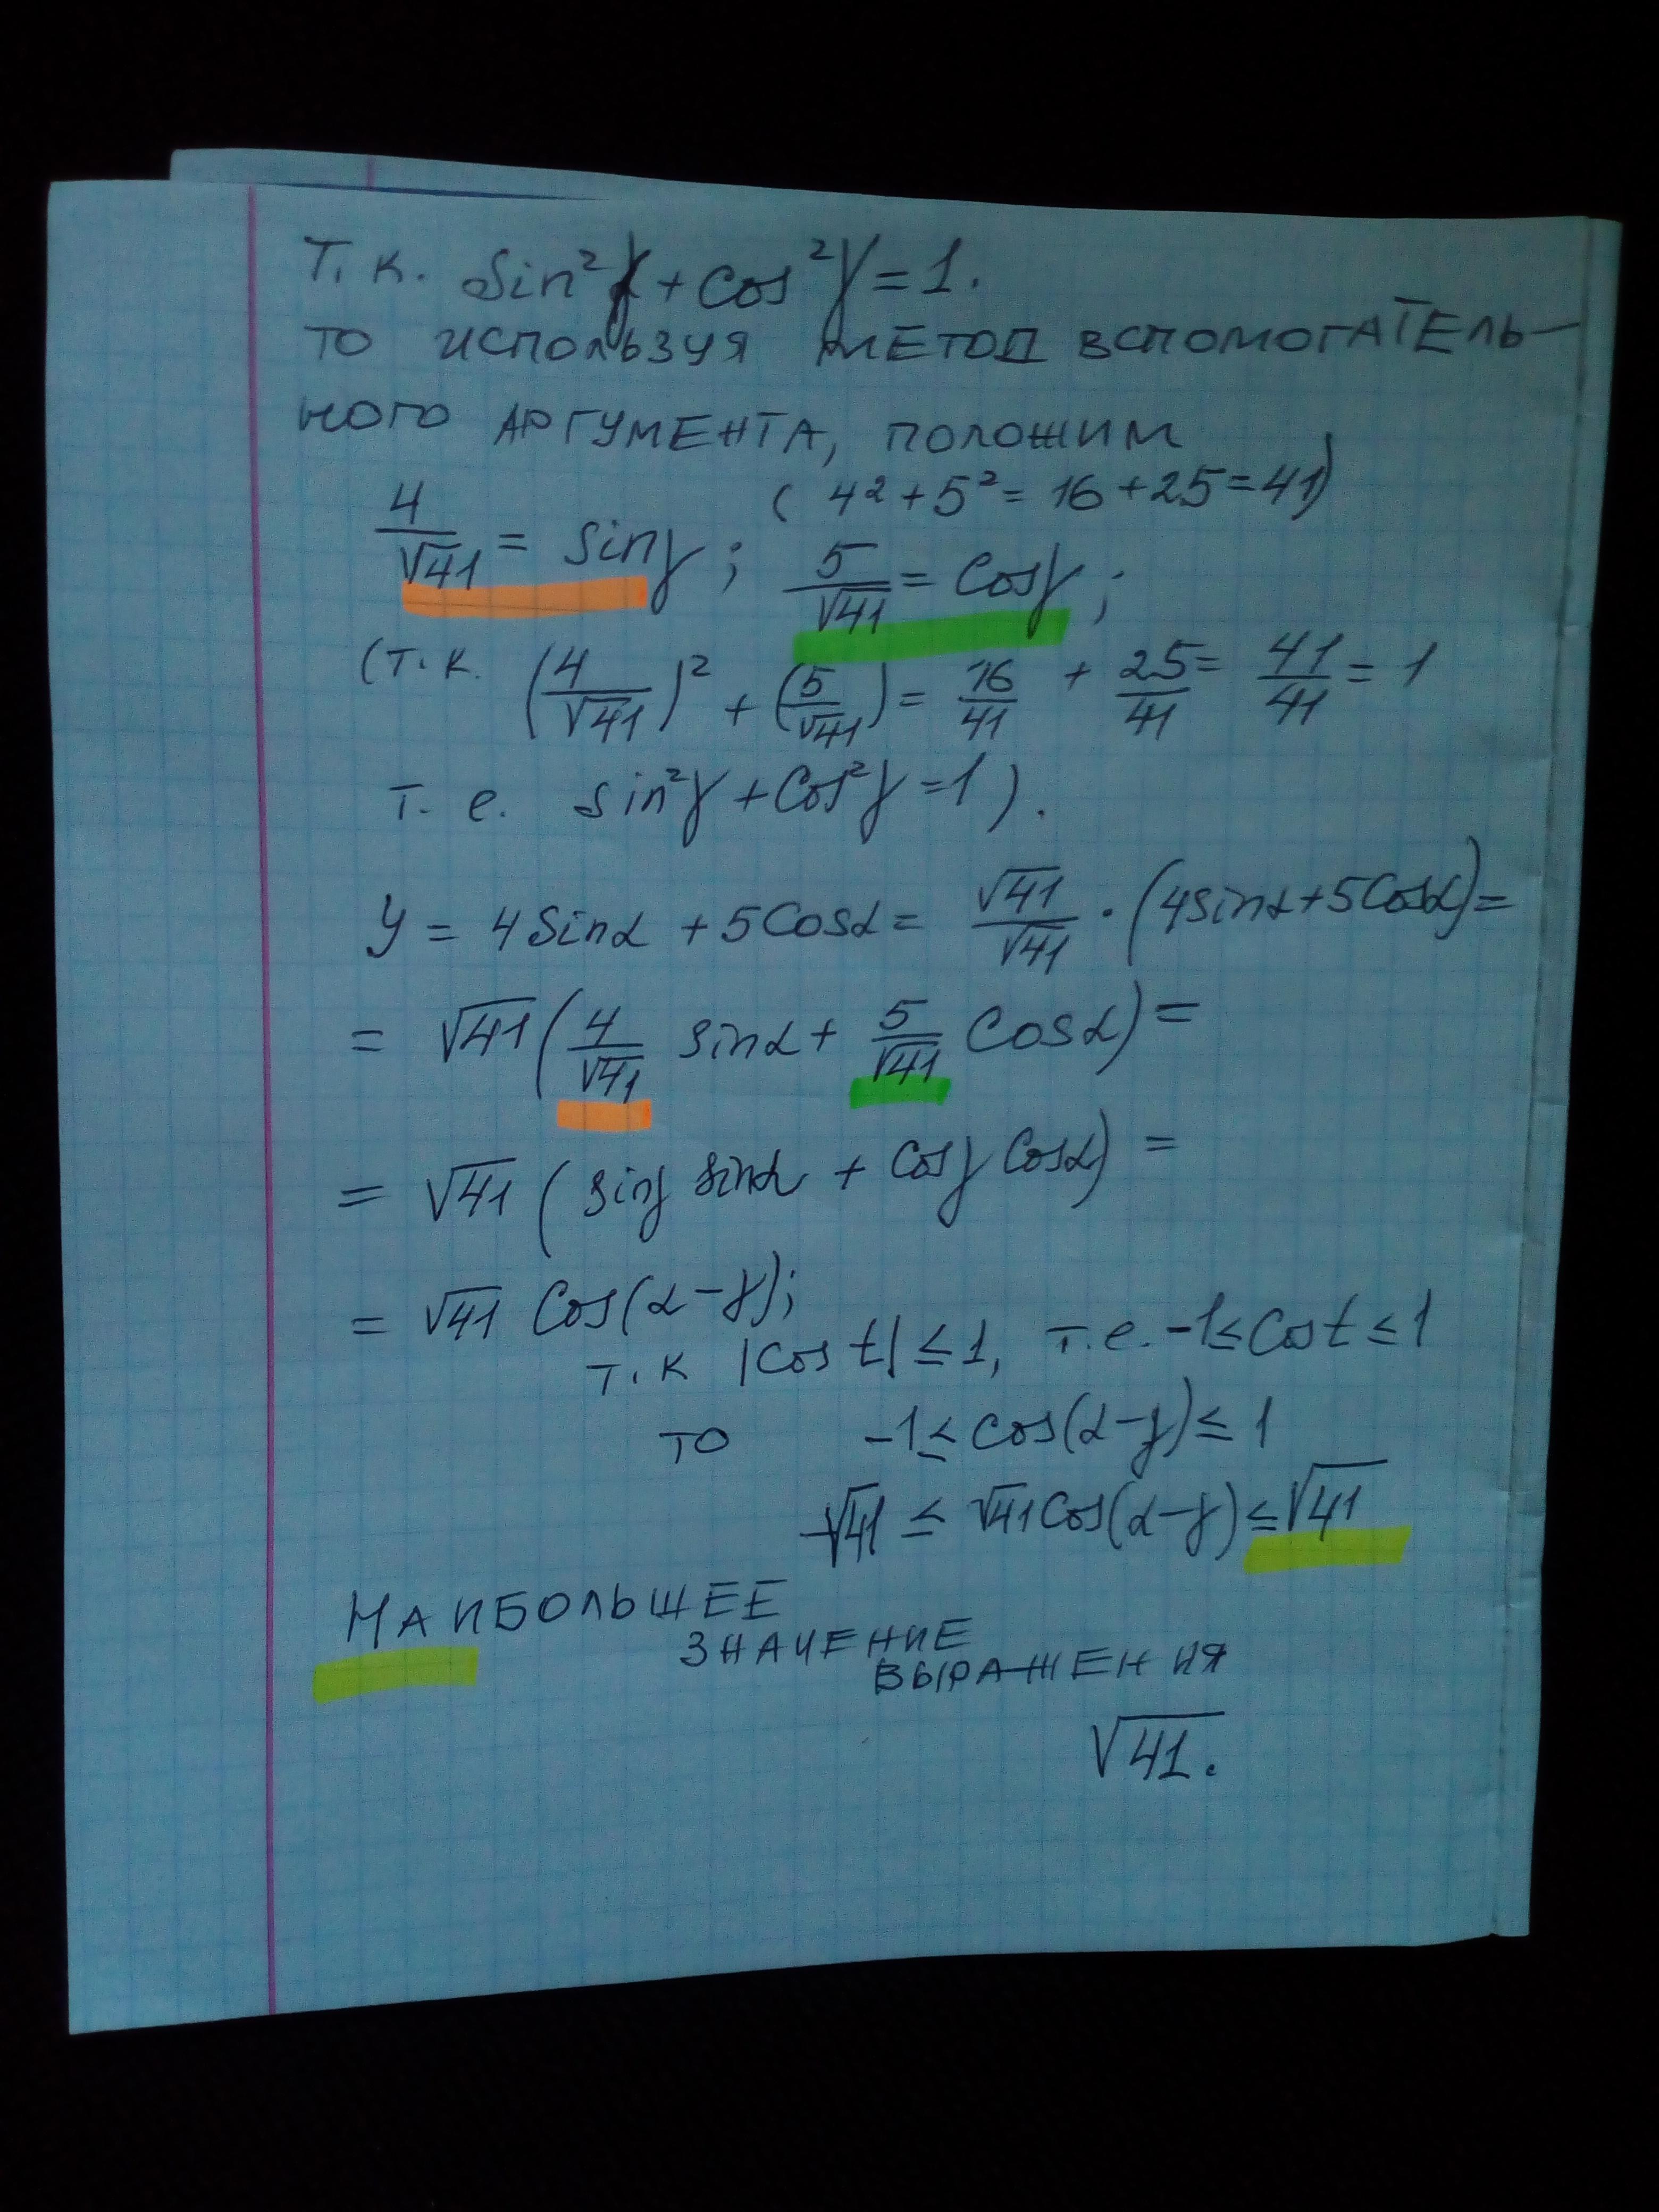 Т.к. Sin²γ + Cos²γ = 1.
ТО ИСПОЛЬЗУЯ МЕТОД ВСПОМОГАТЕЛЬ-
НОГО АРГУМЕНТА, ПОЛОЖИМ
(4² + 5² = 16 + 25 = 41)
4/√41 = sinγ; 5/√41 = Cosγ;
(т.к. (4/√41)² + (5/√41) = 16/41 + 25/41 = 41/41 = 1
т. е. sin²γ + Cos²γ = 1).
y = 4Sinα + 5Cosα = √41/√41 · (4sinα + 5Cosα) =
= √41 (4/√41 sinα + 5/√41 Cosα) =
= √41 (sinγ sinα + Cosγ Cosα) =
= √41 Cos(α - γ);
т.к |Cos t| ≤ 1, т.е. -1 ≤ Cos t ≤ 1
ТО -1 ≤ Cos(α - γ) ≤ 1
-√41 ≤ √41 Cos(α - γ) ≤ √41
НАИБОЛЬШЕЕ
ЗНАЧЕНИЕ
ВЫРАЖЕНИЯ
√41.